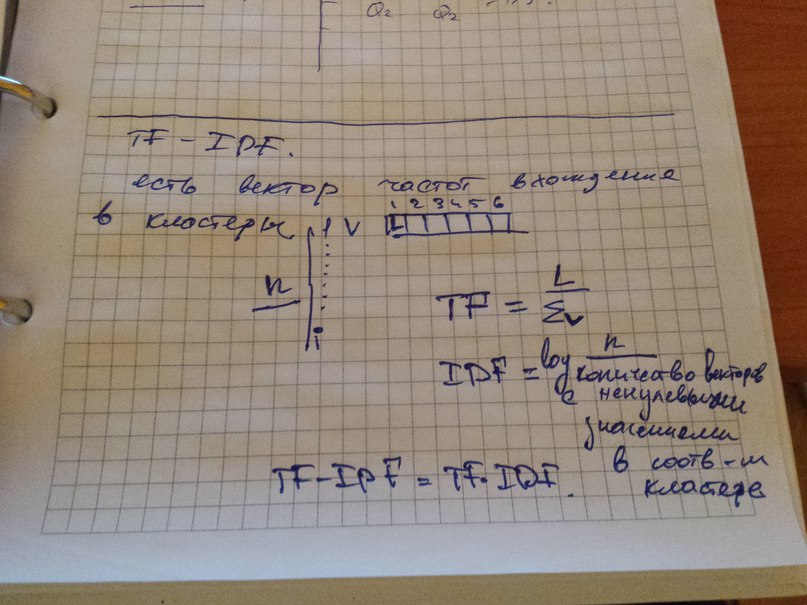 Q₂ Q₂
TF - IDF.
есть вектор частот вхождения
в кластеры 1 V
1 2 3 4 5 6
L
n
i
TF = L / Σv
IDF = log n / количество векторов
с ненулевыми
значениями
в соотв-м
кластере
TF-IDF = TF·IDF.